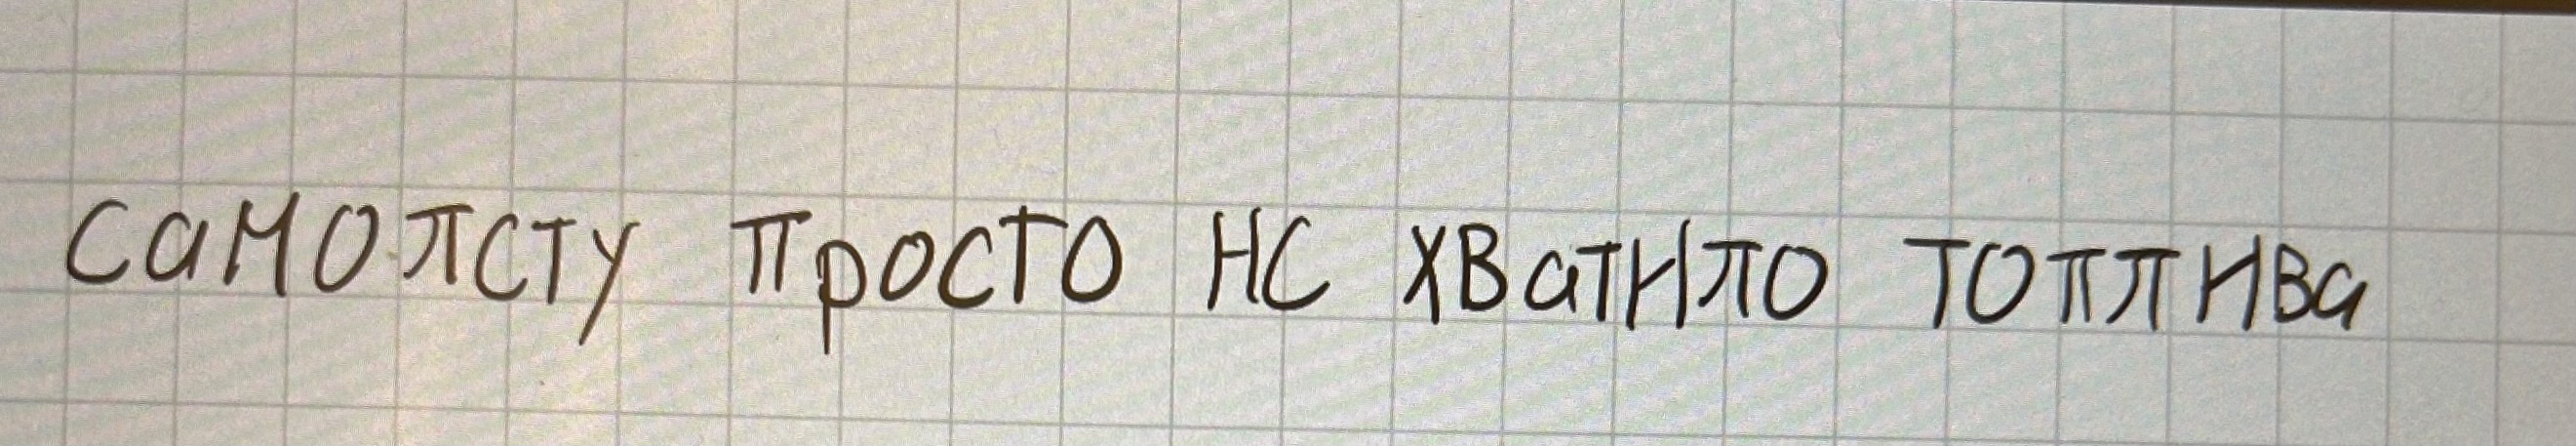 самолсту просто нс хватило топлива